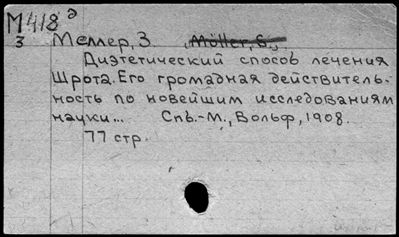 М418 э
3 Меллер, З. Möller, S.
Диэтетический способ лечения
Шрота. Его громадная действитель-
ность по новейшим исследованиям
науки... Спб.-М., Вольф, 1908.
77 стр.